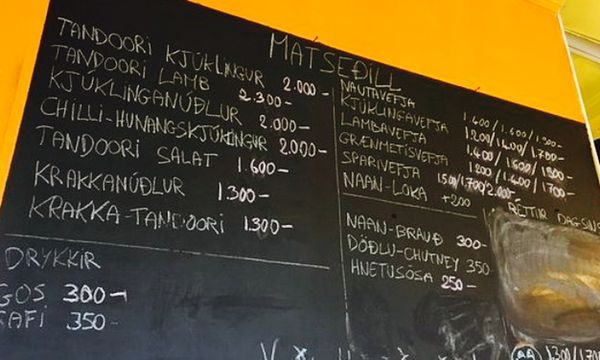 MATSEÐILL
TANDOORI KJÚKLINGUR 2.000-
TANDOORI LAMB 2.300-
KJÚKLINGANÚÐLUR 2.000-
CHILLI-HUNANGSKJÚKLINGUR 2.000-
TANDOORI SALAT 1.600-
KRAKKANÚÐLUR 1.300-
KRAKKA-TANDOORI 1.300-
DRYKKIR
GOS 300-
KAFFI 350-
NAUTAVEFJA 1.400/1.600/1.900-
KJÚKLINGAVEFJA 1.200/1.400/1.700-
LAMBAVEFJA 1.400/1.600/1.900-
GRÆNMETISVEFJA 1.200/1.400/1.700-
SPARIVEFJA 1500/1.700/2.000-
NAAN-LOKA +200
NAAN-BRAUÐ 300-
DÖÐLU-CHUTNEY 350
HNETUSÓSA 250-
RÉTTIR DAGSINS
1300/1700